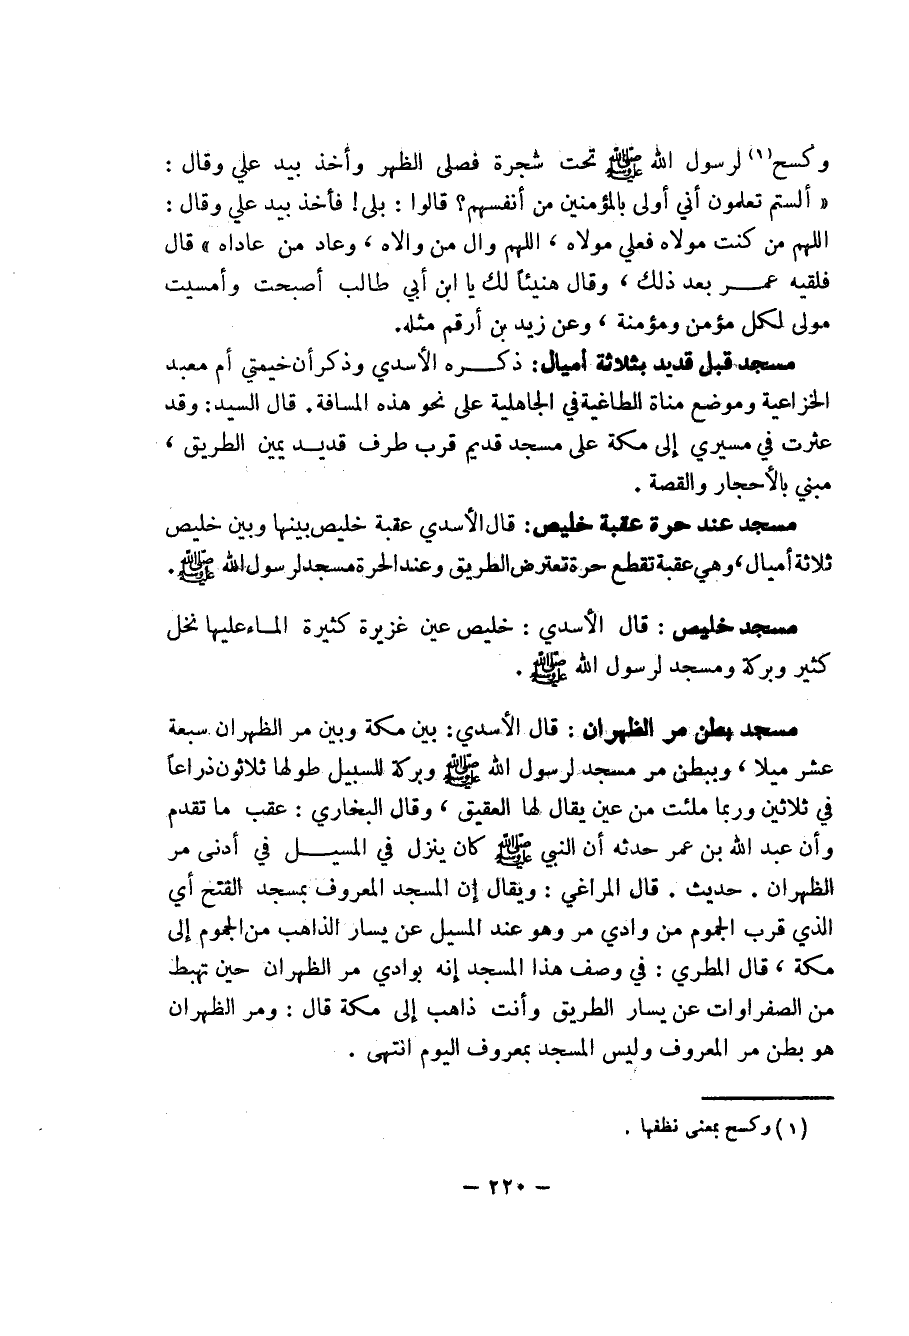 وكسح(١) لرسول الله ﷺ تحت شجرة فصلى الظهر وأخذ بيد علي وقال :
« ألستم تعلمون أني أولى بالمؤمنين من أنفسهم؟ قالوا : بلى! فأخذ بيد علي وقال :
اللهم من كنت مولاه فعلي مولاه ، اللهم وال من والاه ، وعاد من عاداه » قال
فلقيه عمر بعد ذلك ، وقال هنيئاً لك يا ابن أبي طالب أصبحت وأمسيت
مولى لكل مؤمن ومؤمنة ، وعن زيد بن أرقم مثله.
مسجد قبل قديد بثلاثة أميال: ذكره الأسدي وذكر أن خيمتي أم معبد
الخزاعية وموضع مناة الطاغية في الجاهلية على نحو هذه المسافة. قال السيد: وقد
عثرت في مسيري إلى مكة على مسجد قديم قرب طرف قديد يمين الطريق ،
مبني بالأحجار والقصة .
مسجد عند حرة عقبة خليص: قال الأسدي عقبة خليص بينها وبين خليص
ثلاثة أميال ، وهي عقبة تقطع حرة تعترض الطريق وعند الحرة مسجد لرسول الله ﷺ.
مسجد خليص : قال الأسدي : خليص عين غزيرة كثيرة الماء عليها نخل
كثير وبركة ومسجد لرسول الله ﷺ .
مسجد بطن مر الظهران : قال الأسدي: بين مكة وبين مر الظهران سبعة
عشر ميلا ، وببطن مر مسجد لرسول الله ﷺ وبركة للسبيل طولها ثلاثون ذراعاً
في ثلاثين وربما ملئت من عين يقال لها العقيق ، وقال البخاري : عقب ما تقدم
وأن عبد الله بن عمر حدثه أن النبي ﷺ كان ينزل في المسيل في أدنى مر
الظهران . حديث . قال المراغي : ويقال إن المسجد المعروف بمسجد الفتح أي
الذي قرب الجموم من وادي مر وهو عند المسيل عن يسار الذاهب من الجموم إلى
مكة ، قال المطري : في وصف هذا المسجد إنه بوادي مر الظهران حين تهبط
من الصفراوات عن يسار الطريق وأنت ذاهب إلى مكة قال : ومر الظهران
هو بطن مر المعروف وليس المسجد بمعروف اليوم انتهى .
(١) وكسح بمعنى نظفها .
– ٢٢٠ –